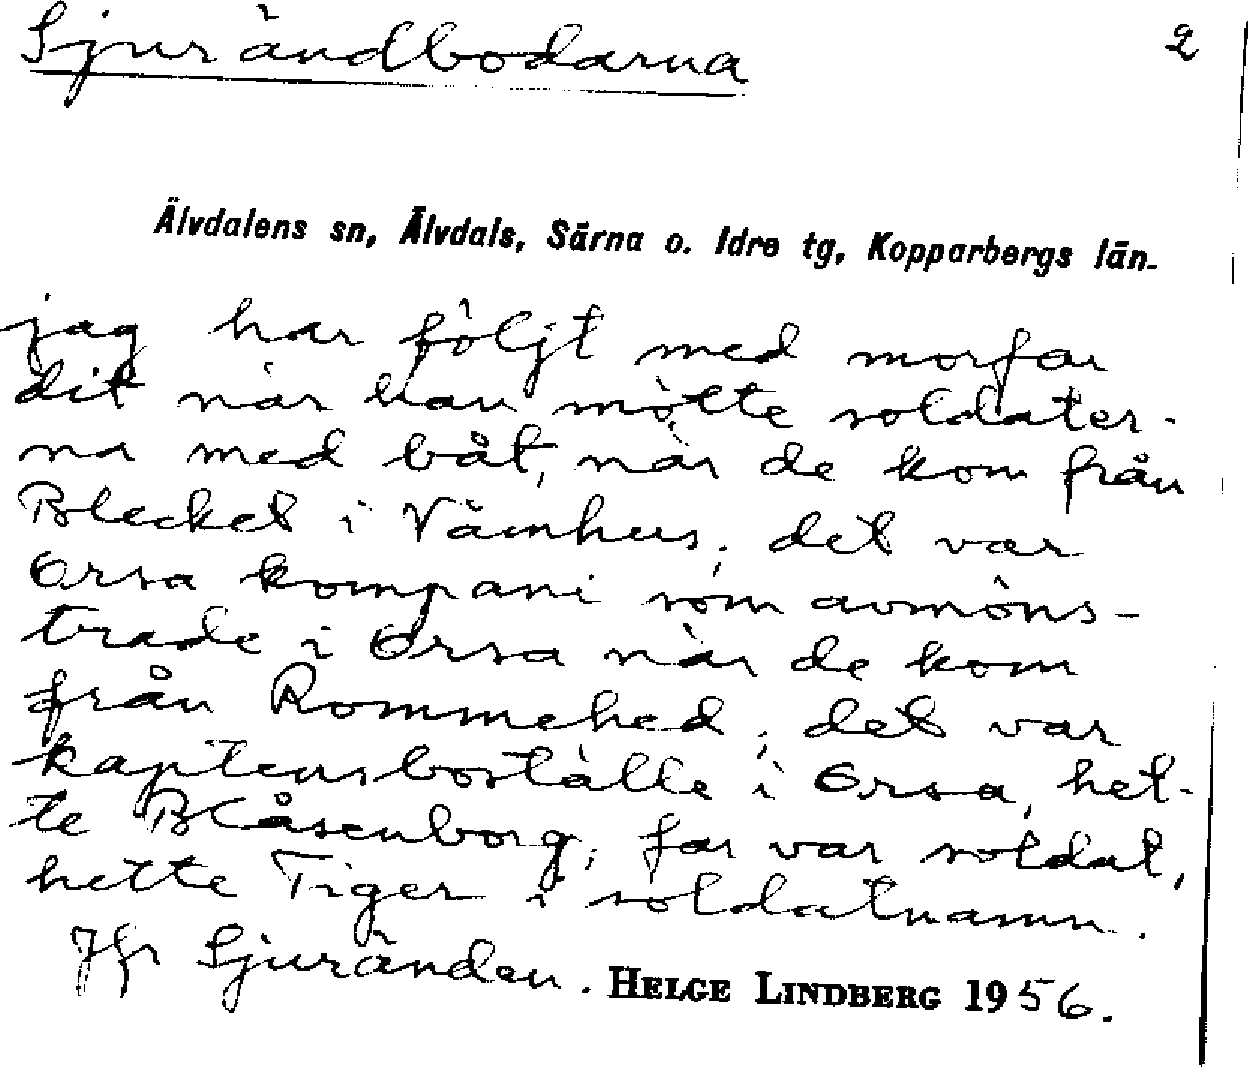 Sjurändbodarna 2
Älvdalens sn, Älvdals, Särna o. Idre tg, Kopparbergs län.
jag har följt med morfar
dit när han mötte soldater-
na med båt, när de kom från
Blecket i Våmhus; det var
Orsa kompani som avmöns-
trade i Orsa när de kom
från Rommehed; det var
kaptensboställe i Orsa, het-
te Blåsenborg; far var soldat,
hette Tiger i soldatnamn.
Jfr Sjuränden. HELGE LINDBERG 1956.